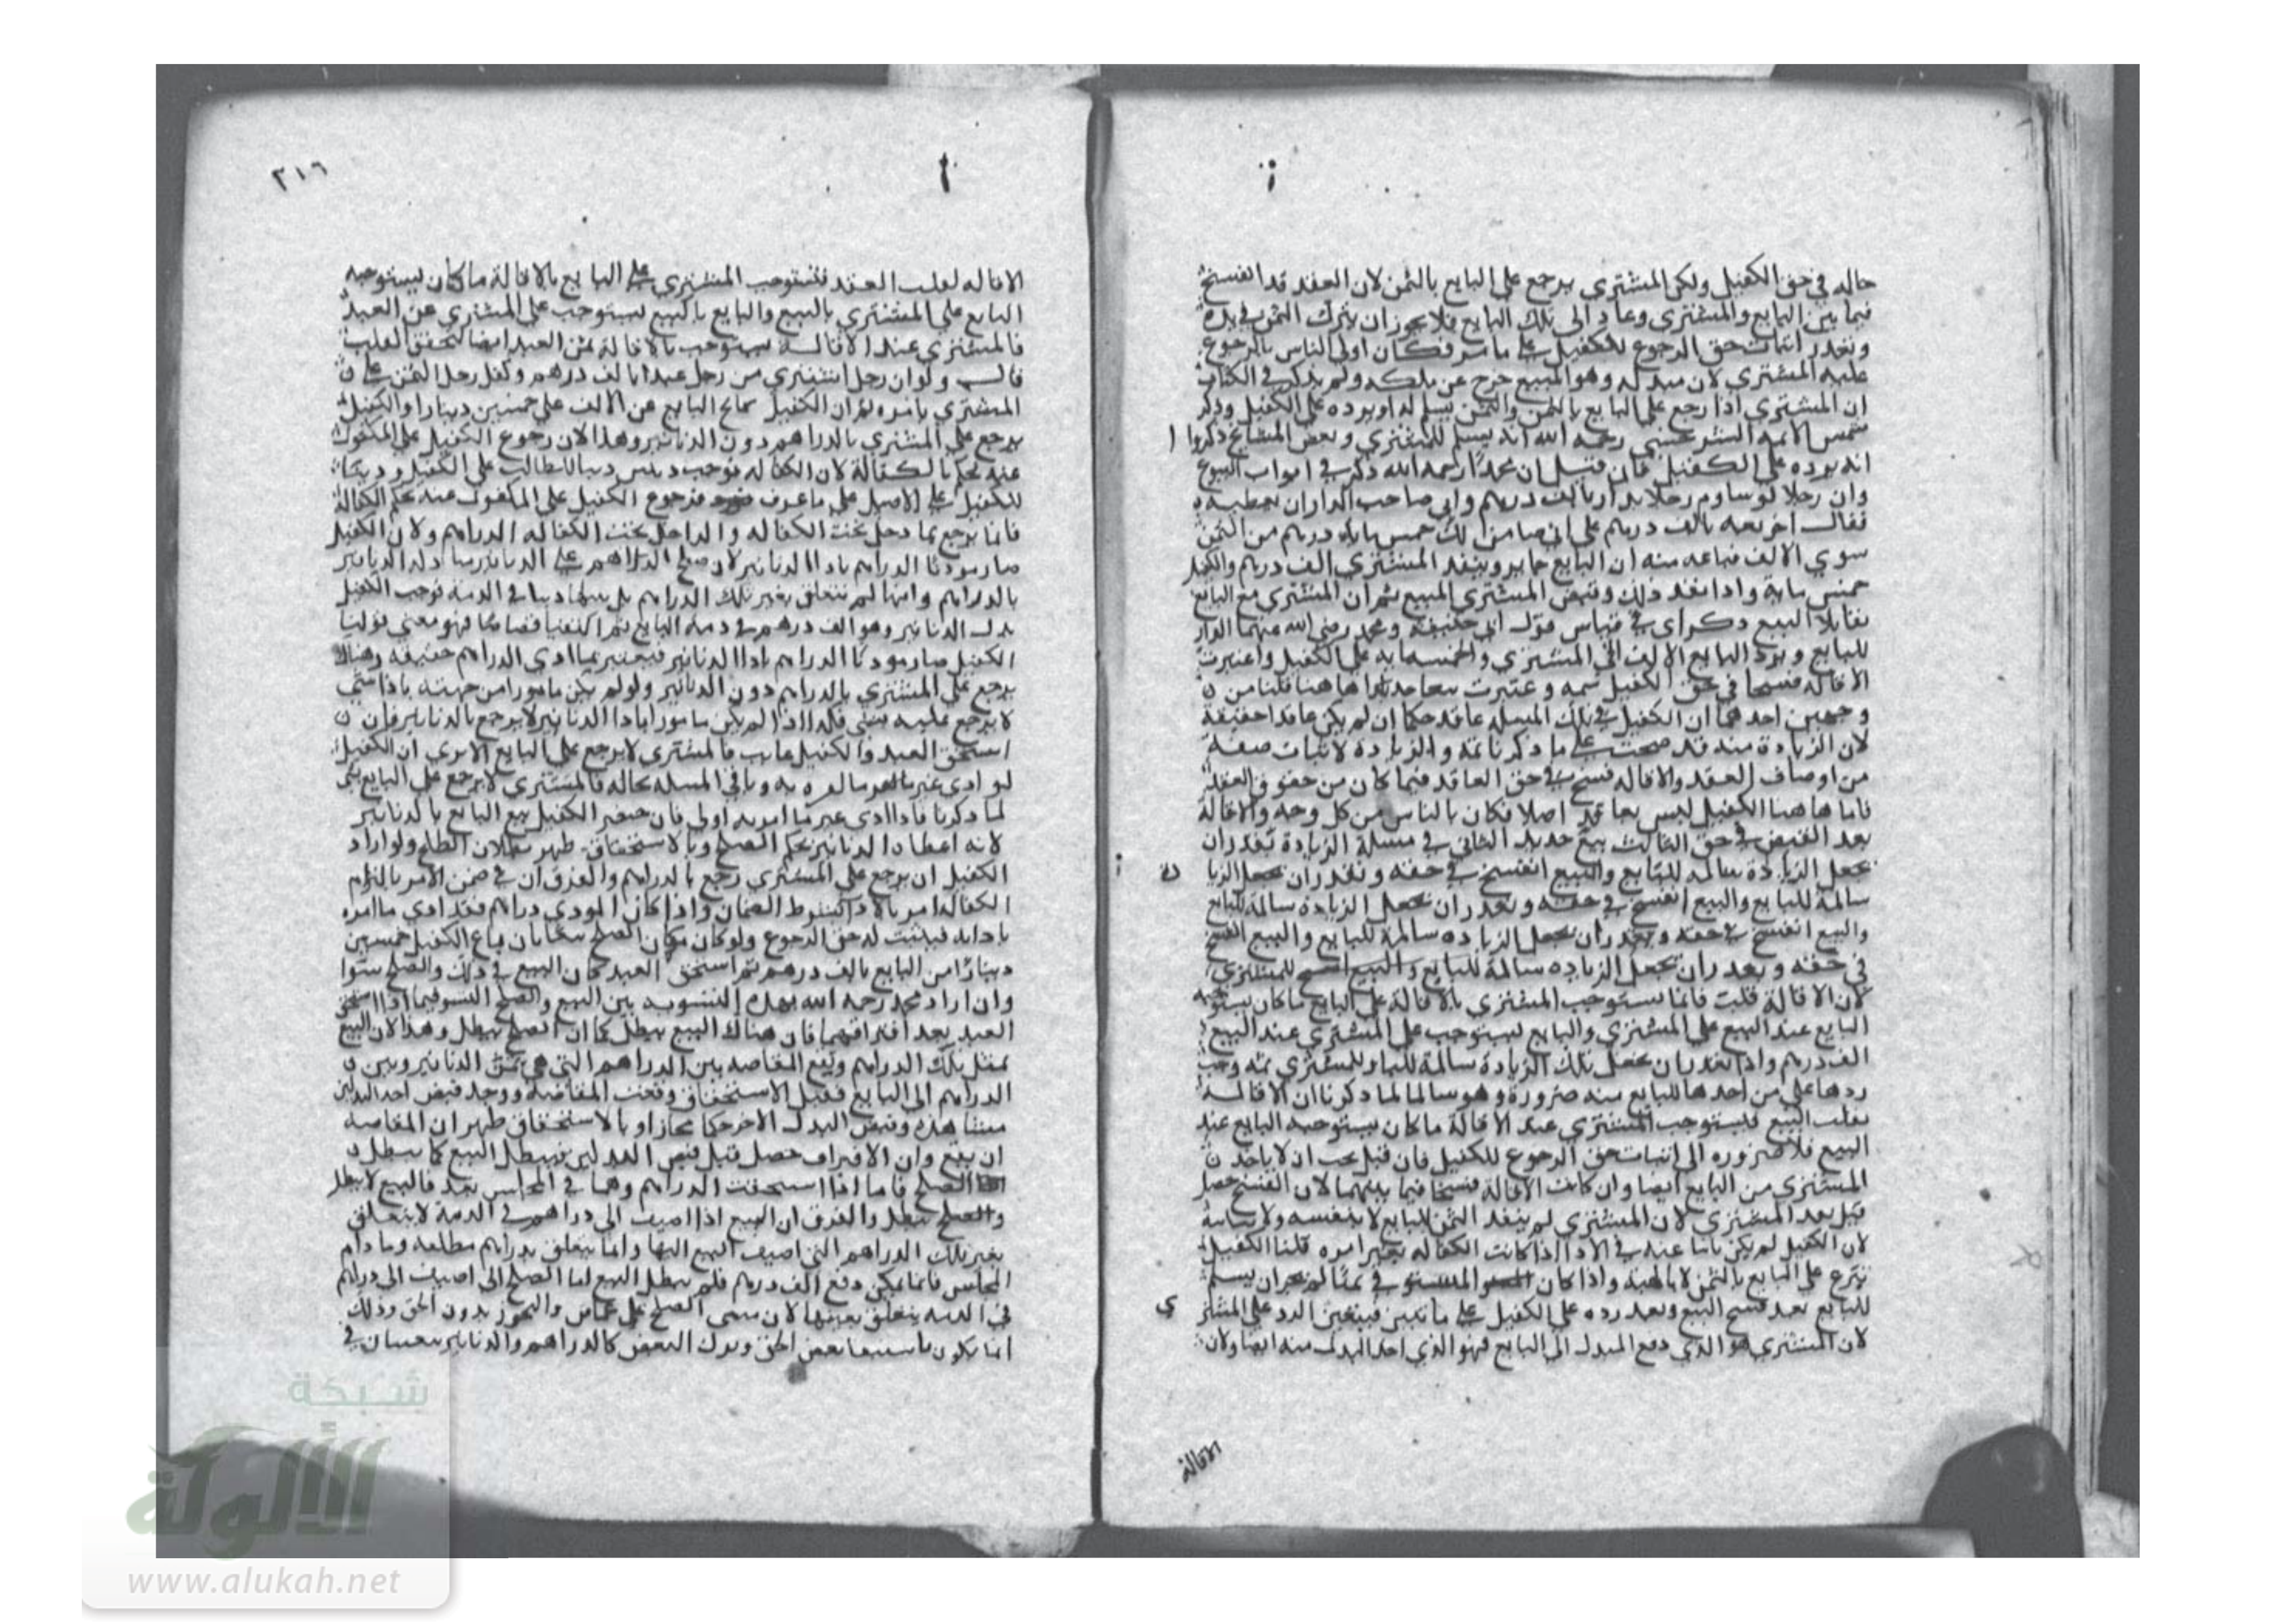 حاله في حق الكفيل ولكن المشتري يرجع على البايع بالثمن لان العقد قد انفسخ
فيما بين البايع والمشتري وعاد الى تلك البايع فلا يجوز ان يترك الثمن في يده
وتعذر اثبات حق الرجوع للكفيل على ما مر فكان اولى الناس بالرجوع
عليه المشتري لان مبدله وهو المبيع خرج عن ملكه ولم يذكر في الكتاب
ان المشتري اذا رجع على البايع بالثمن والثمن يسلم له او يرده على الكفيل وذكر
شمس الائمه السرخسي رحمه الله انه يسلم للمشتري وبعض المشايخ ذكروا
انه يرده على الكفيل فان قيل ان محمدا رحمه الله ذكر في ابواب البيوع
وان رجلا لو ساوم رجلا بدار بالف درهم وابى صاحب الدار ان يعطيه
فقال اخر بعه بالف درهم على اني ضامن لك خمس مايه درهم من الثمن
سوي الالف فباعه منه ان البايع جايز وينقد المشتري الف درهم والكفيل
خمس ماية واذا نقد ذلك وقبض المشتري المبيع ثم ان المشتري مع البايع
تقايلا البيع ذكر اى في قياس قول ابي حنيفة ومحمد رضي الله عنهما الدار
للبايع ويرد البايع الالف الى المشتري والخمسمايه على الكفيل واعتبرت
الاقاله فسخا في حق الكفيل ثمه وعتبرت بيعا جديدا هاهنا قلنا من
وجهين احدهما ان الكفيل في تلك المسله عاقد حكما ان لم يكن عاقدا حقيقة
لان الزيادة منه قد صحت على ما ذكرنا ثمة والزيادة لاثبات صفة
من اوصاف العقد والاقاله فسخ في حق العاقد فيما كان من حقوق العقد
فاما هاهنا الكفيل ليس بعاقد اصلا فكان بالناس من كل وجه والاقالة
بعد القبض في حق الثالث بيع جديد الثاني في مسلة الزيادة تعذر ان
نجعل الزيادة سالمه للبايع والبيع انفسخ في حقه وتعذر ان نجعل الزيا دة
سالمة للبايع والبيع انفسخ في حقه وتعذر ان نجعل الزيادة سالمة للبايع
والبيع انفسخ في حقه وتعذر ان نجعل الزياده سالمة للبايع والبيع انفسخ
في حقه وتعذر ان نجعل الزياده سالمة للبايع والبيع انفسخ للمشتري
لان الاقالة قلبت فانما يستوجب المشتري بالاقالة على البايع ما كان يستوجبه
البايع عند البيع على المشتري والبايع ليستوجب على المشتري عند البيع
الف درهم واذا تعذر ان نجعل تلك الزيادة سالمة للبايع وللمشتري ثمه وجب
ردها على من اخذها البايع منه ضرورة وهو سالما لما ذكرنا ان الاقالة
تقلب البيع فيستوجب المشتري عند الاقالة ما كان يستوجبه البايع عند
البيع فلا ضروره الى اثبات حق الرجوع للكفيل فان قيل يجب ان لا ياخذ
المشتري من البايع ايضا وان كانت الاقالة فسخا فيما بينهما لان الفسخ حصل
قبل بعد المشتري لان المشتري لم ينقد الثمن للبايع لا بنفسه ولا بنيابة
لان الكفيل لم يكن نائبا عنه في الادا اذا كانت الكفاله بغير امره قلنا الكفيل
تبرع على البايع بالثمن لا بالهبة واذا كان المستوفى ثمنا لم يجز ان يسلم
للبايع بعد فسخ البيع وبعد رده على الكفيل على ما تبين فيتعين الرد على المشتر ي
لان المشتري هو الذي دفع المبدل الى البايع فهو الذي اخذ البدل منه ايضا ولان
الاقالة
٣١٦
الاقاله لقلب العقد فيستوجب المشتري على البايع بالاقالة ما كان يستوجبه
البايع على المشتري بالبيع والبايع بالبيع يستوجب على المشتري عن العبد
فالمشتري عند الاقالة يستوجب بالاقالة ثمن العبد ايضا لتحقق القلب
قال ولو ان رجل اشترى من رجل عبدا بالف درهم وكفل رجل الثمن على
المشتري بامره ثم ان الكفيل صالح البايع عن الالف على خمسين دينارا والكفيل
يرجع على المشتري بالدراهم دون الدنانير وهذا لان رجوع الكفيل على المكفول
عنه بحكم الكفالة لان الكفاله توجب دينين دينا للطالب على الكفيل ودينا
للكفيل على الاصيل على ما عرف فرجوع الكفيل على المكفول عنه بحكم الكفالة
فانما يرجع بما دخل تحت الكفاله والداخل تحت الكفاله الدراهم ولان الكفيل
صار مودئا الدراهم بادا الدنانير لان صلح الدراهم على الدنانير مبادله الدنانير
بالدراهم وانها لم تتعلق بغير تلك الدراهم بل بمثلها دينا في الذمة فوجب للكفيل
بدل الدنانير وهو الف درهم في ذمة البايع ثم التقيا قصاصا فهو معني قولنا
الكفيل صار مودئا الدراهم بادا الدنانير فيعتبر بما ادى الدراهم حقيقه وهناك
يرجع على المشتري بالدراهم دون الدنانير ولو لم يكن مامورا من جهته باذا شي
لا يرجع عليه بشي فكذا اذا لم يكن مامورا بادا الدنانير لا يرجع بالدنانير فان
استحق العبد والكفيل غايب فالمشتري لا يرجع على البايع الا يرى ان الكفيل
لو ادى غير ما امره به وباقي المسله بحاله فالمشتري لا يرجع على البايع بشي
لما ذكرنا فاذا ادى غير ما امر به اولى فان حضر الكفيل يتبع البايع بالدنانير
لانه اعطاه الدنانير بحكم الصلح وبالاستحقاق ظهر بطلان الصلح ولو اراد
الكفيل ان يرجع على المشتري رجع بالدراهم والفرق ان في ضمن الامر بالتزام
الكفاله امر بالادا بشرط الضمان واذا كان المودي دراهم فقد ادي ما امره
بادايه فيثبت له حق الرجوع ولو كان مكان الصلح بيعا بان باع الكفيل خمسين
دينارا من البايع بالف درهم ثم استحق العبد كان البيع في ذلك والصلح سوا
وان اراد محمد رحمه الله بهذه التسوية بين البيع والصلح التسو فيما اذا استحق
العبد بعد افتراقهما فان هناك البيع يبطل كما ان الصلح يبطل وهذا لان البيع
بمثل تلك الدراهم وتقع المقاصه بين الدراهم التي هي ثمن الدنانير وبين
الدراهم الى البايع فقبل الاستحقاق وقعت المقاصة ووجد قبض احد البدلين
مشاهدة وقبض البدل الاخر حكما مجازا وبالاستحقاق ظهر ان المقاصه
ان يقع وان الافتراق حصل قبل قبض البدلين فيبطل البيع كما يبطل
الصلح فاما اذا استحقت الدراهم وهما في المجلس بعد فالبيع لا يبطل
والصلح يبطل والفرق ان البيع اذا اضيف الى دراهم في الذمة لا يتعلق
بغير تلك الدراهم التي اضيف البيع اليها وانما يتعلق بدراهم مطلقه وما دام
المجلس فانما يمكن دفع الف درهم فلم يبطل البيع اما الصلح الى اضيف الى دراهم
في الذمه يتعلق بعينها لان مبنى الصلح على والتجوز بدون الحق وذلك
انما يكون باستيفا بعض الحق وترك البعض كالدراهم والدنانير يتعينان في
شبكة
الألوكة
www.alukah.net